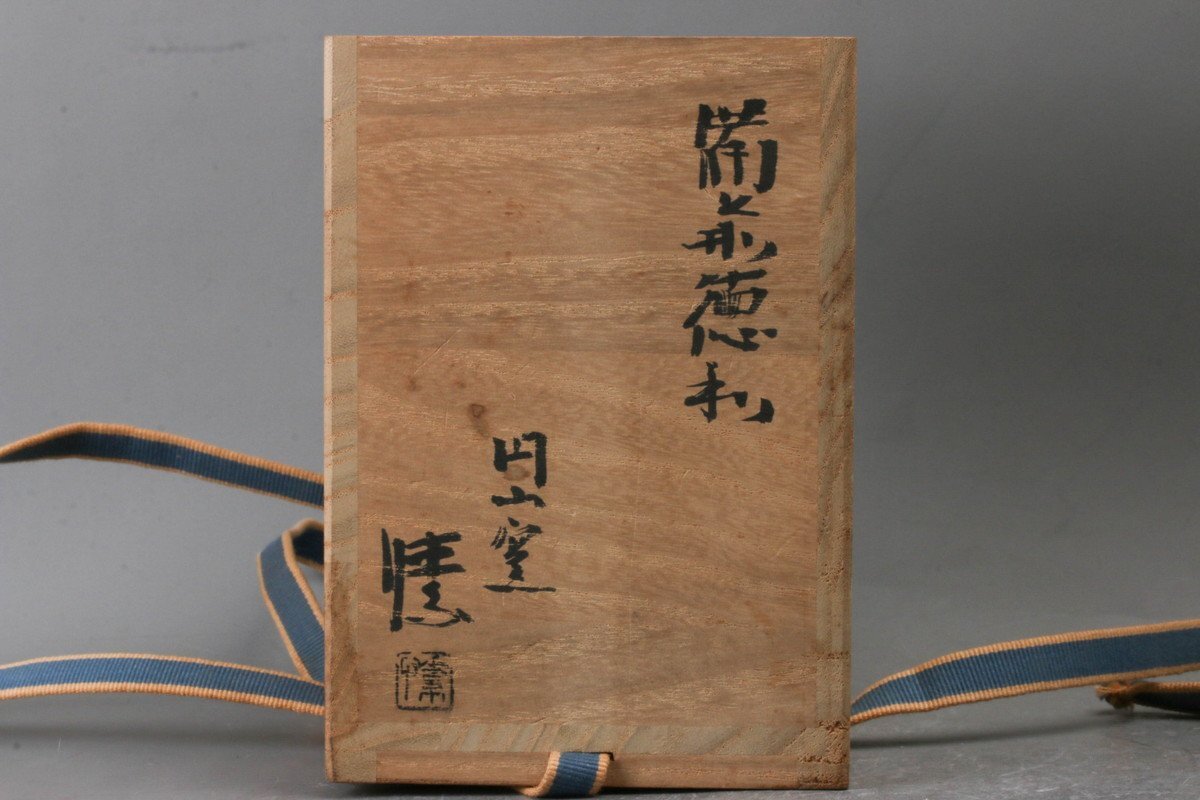 備前徳利
円山窯